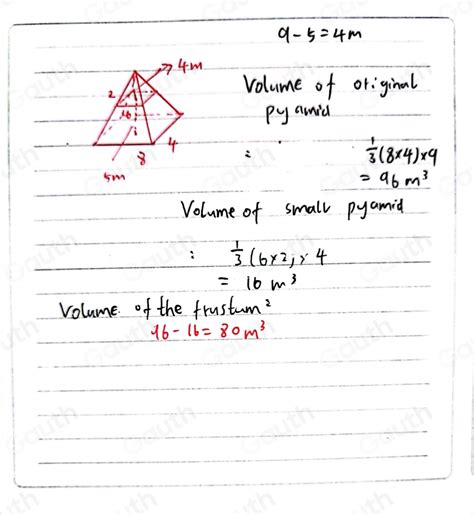 9-5=4m
4m
2
16
8
4
5m
Volume of original
pyamid
: 1/3(8x4)x9
= 96 m³
Volume of small pyamid
: 1/3(6x2)x4
= 16 m³
Volume of the frustum²
96-16=80m³